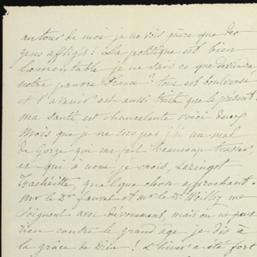 autour de moi je ne vois guère que des
gens affligés : La politique est bien
lamentable je ne sais ce que deviendra
notre pauvre France ! tout est bouleversé
et l'avenir est aussi triste que le présent
ma santé est chancelante voici deux
Mois que je ne sors pas j'ai un mal
de gorge qui me fait beaucoup tousser
ce qu'à nous je crois, Laringot
Trachéitte, quelque chose approchant.
Mr le Dr Favret et Mr le Dr
soignent avec dévouement, mais on ne peut
rien contre le grand âge je dis à
la grâce de Dieu ! L'hiver a été fort